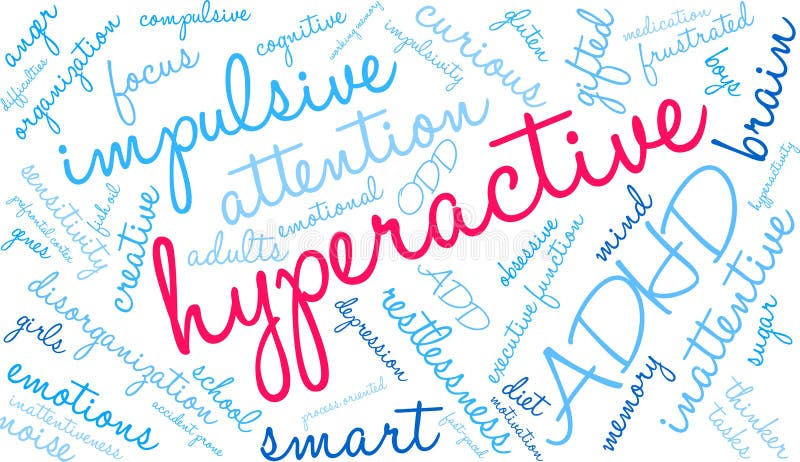 anger
difficulties
organization
compulsive
focus
cognitive
working memory
impulsivity
curious
gluten
gifted
medication
frustrated
boys
brain
impulsive
attention
hyperactive
sensitivity
prefrontal cortex
fish oil
gnes
creative
adults
emotional
ODD
ADD
obsessive
executive function
mind
ADHD
hyperactivity
inattentive
sugar
disorganization
girls
depression
restlessness
school
emotions
inattentiveness
noise
accident prone
process oriented
smart
fast-paced
motivation
diet
memory
thinker
tasks